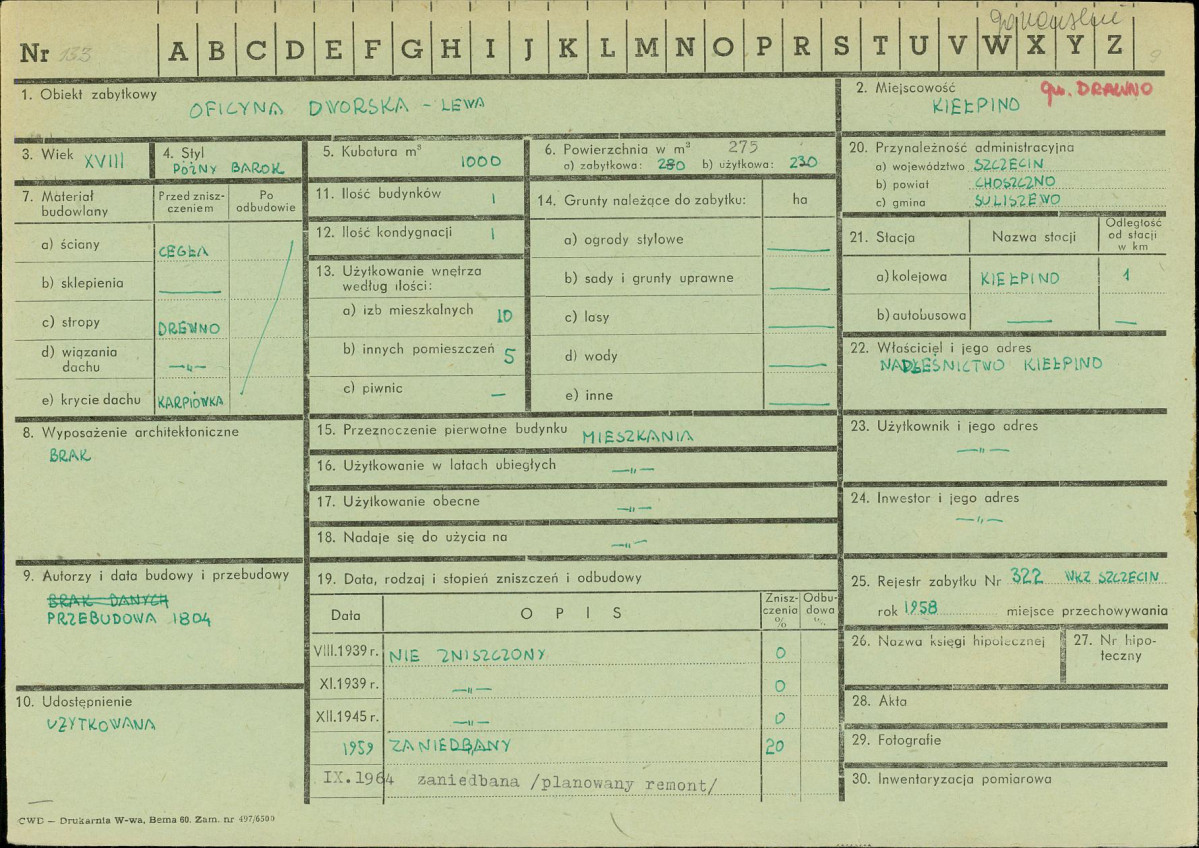 Nr 133 A B C D E F G H I J K L M N O P R S T U V W X Y Z
1. Obiekt zabytkowy
OFICYNA DWORSKA – LEWA
2. Miejscowość gw. DRAWNO
KIEŁPINO
3. Wiek XVIII
4. Styl
PÓŹNY BAROK
5. Kubatura m³
1000
6. Powierzchnia w m² 275
a) zabytkowa: 280 b) użytkowa: 230
20. Przynależność administracyjna
a) województwo SZCZECIN
b) powiat CHOSZCZNO
c) gmina SULISZEWO
7. Materiał budowlany
Przed znisz-
czeniem
Po
odbudowie
a) ściany CEGŁA
b) sklepienia —
c) stropy DREWNO
d) wiązania
dachu —„—
e) krycie dachu KARPIÓWKA
11. Ilość budynków 1
12. Ilość kondygnacji 1
13. Użytkowanie wnętrza
według ilości:
a) izb mieszkalnych 10
b) innych pomieszczeń 5
c) piwnic —
14. Grunty należące do zabytku: ha
a) ogrody stylowe —
b) sady i grunty uprawne —
c) lasy —
d) wody —
e) inne —
21. Stacja Nazwa stacji
Odległość
od stacji
w km
a) kolejowa KIEŁPINO 1
b) autobusowa — —
22. Właściciel i jego adres
NADLEŚNICTWO KIEŁPINO
8. Wyposażenie architektoniczne
BRAK
15. Przeznoczenie pierwotne budynku MIESZKANIA
16. Użytkowanie w latach ubiegłych —„—
17. Użytkowanie obecne —„—
18. Nadaje się do użycia na —„—
23. Użytkownik i jego adres
—„—
24. Inwestor i jego adres
—„—
9. Autorzy i data budowy i przebudowy
BRAK DANYCH
PRZEBUDOWA 1804
19. Data, rodzaj i stopień zniszczeń i odbudowy
Data OPIS
Znisz-
czenia
%
Odbu-
dowa
%
VIII.1939 r. NIE ZNISZCZONY 0
XI.1939 r. —„— 0
XII.1945 r. —„— 0
1959 ZANIEDBANY 20
IX.1964 zaniedbana /planowany remont/
25. Rejestr zabytku Nr 322 WKZ SZCZECIN
rok 1958 miejsce przechowywania
26. Nazwa księgi hipotecznej
27. Nr hipo-
teczny
10. Udostępnienie
UŻYTKOWANA
28. Akta
29. Fotografie
30. Inwentaryzacja pomiarowa
CWD — Drukarnia W-wa, Bema 60. Zam. nr 497/6500